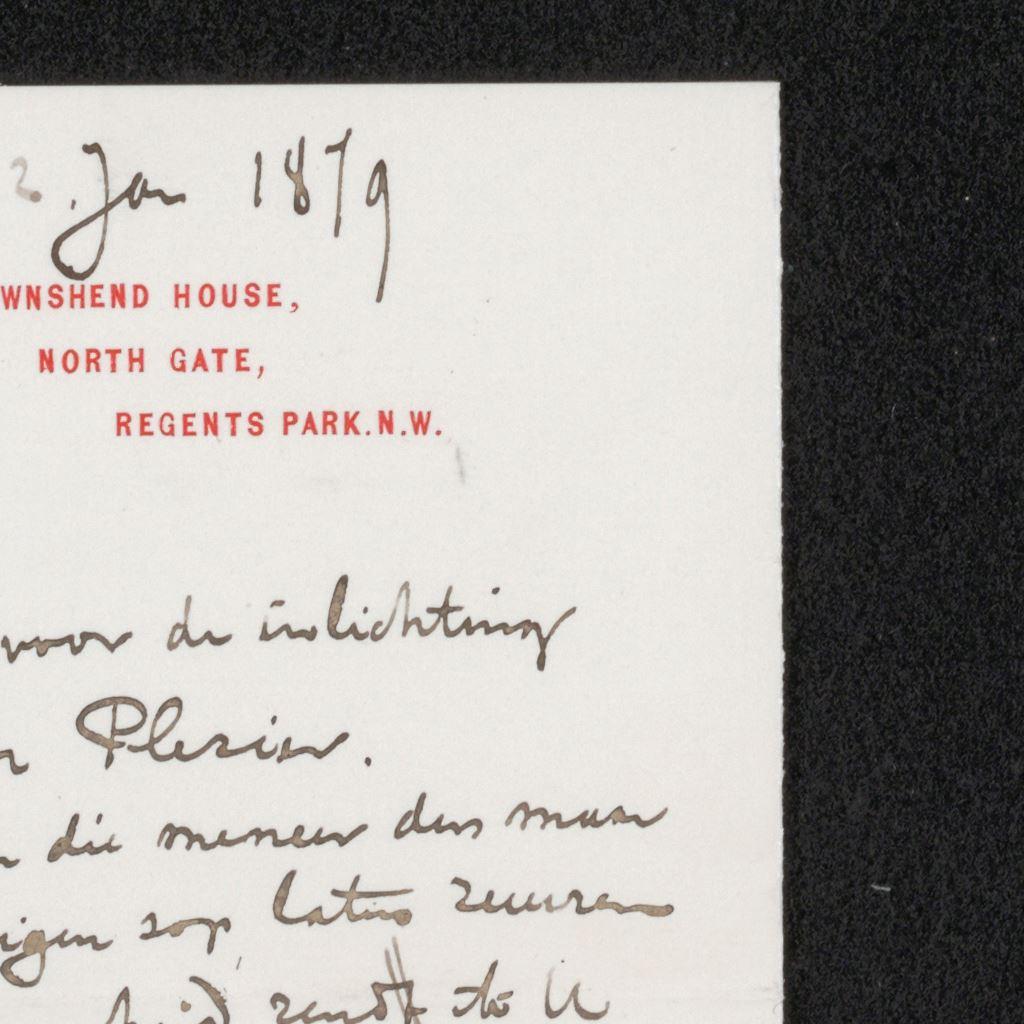 2. Jan 1879
WNSHEND HOUSE,
NORTH GATE,
REGENTS PARK.N.W.
voor de inlichting
Plezier.
die meneer dus maar
eigen sop laten zeuren
zend ik U